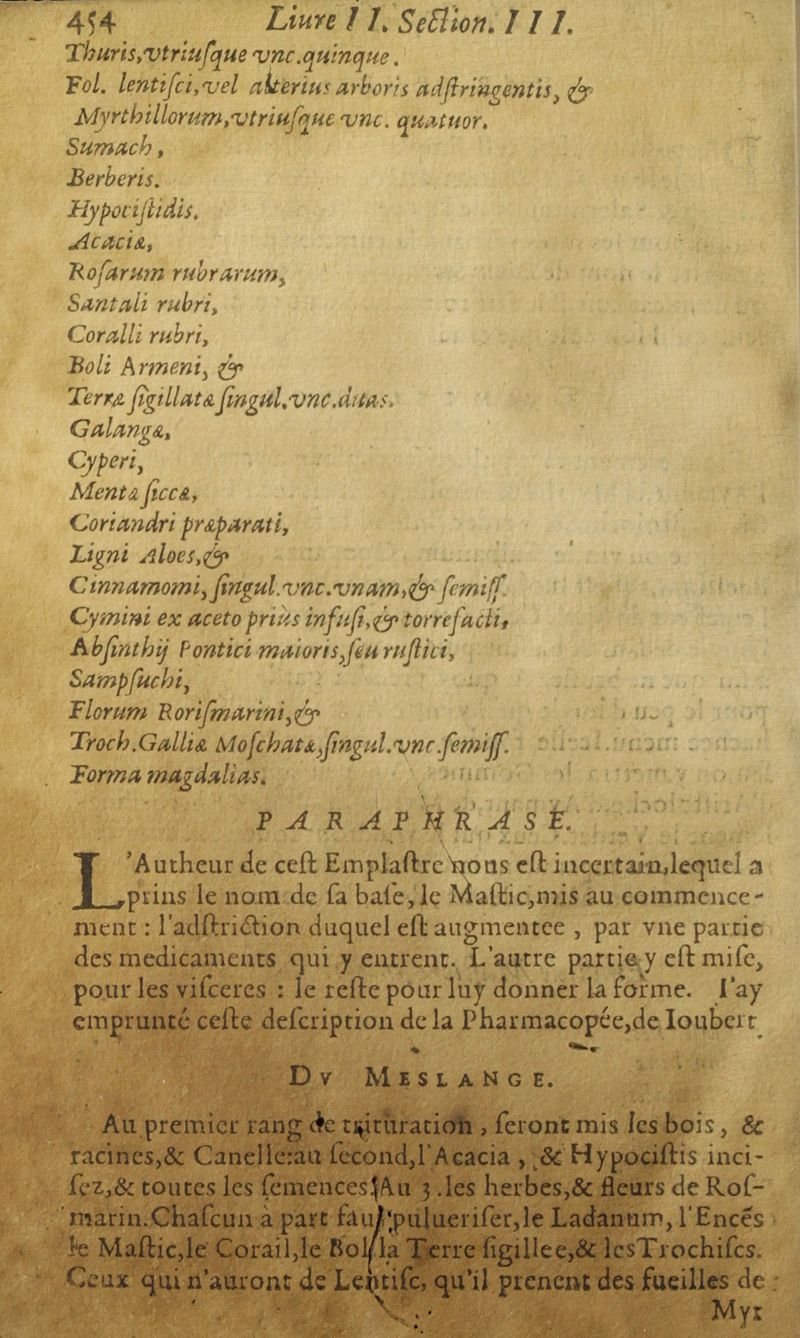 454 Liure I I. Section. I I I.
Thuris, vtriusque vnc. quinque.
Fol. lentisci, vel alterius arboris adstringentis, &
Myrthillorum, vtriusque vnc. quatuor.
Sumach,
Berberis.
Hypocistidis,
Acaciæ,
Rosarum rubrarum,
Santali rubri,
Coralli rubri,
Boli Armeni, &
Terræ sigillatæ singul. vnc. duas.
Galangæ,
Cyperi,
Mentæ siccæ,
Coriandri præparati,
Ligni Aloes, &
Cinnamomi, singul. vnc. vnam, & semiss.
Cymini ex aceto priùs infusi, & torrefacti,
Absinthij Pontici maioris, seu rustici,
Sampsuchi,
Florum Rorismarini, &
Troch. Galliæ Moschatæ, singul. vnc. semiss.
Forma magdalias.
PARAPHRASE.
L'Autheur de cest Emplastre nous est incertain, lequel a
prins le nom de sa base, le Mastic, mis au commence-
ment : l'adstriction duquel est augmentee , par vne partie
des medicaments qui y entrent. L'autre partie y est mise,
pour les visceres : le reste pour luy donner la forme. I'ay
emprunté ceste description de la Pharmacopée, de Ioubert
DV MESLANGE.
Au premier rang de trituration , seront mis les bois, &
racines, & Canelle: au second, l'Acacia , & Hypocistis inci-
sez, & toutes les semences: Au 3. les herbes, & fleurs de Ros-
marin. Chascun à part faut puluerifer, le Ladanum, l'Encés
le Mastic, le Corail, le Bol, la Terre sigillee, & les Trochiscs.
Ceux qui n'auront de Lentisc, qu'il prenent des fueilles de
Myr